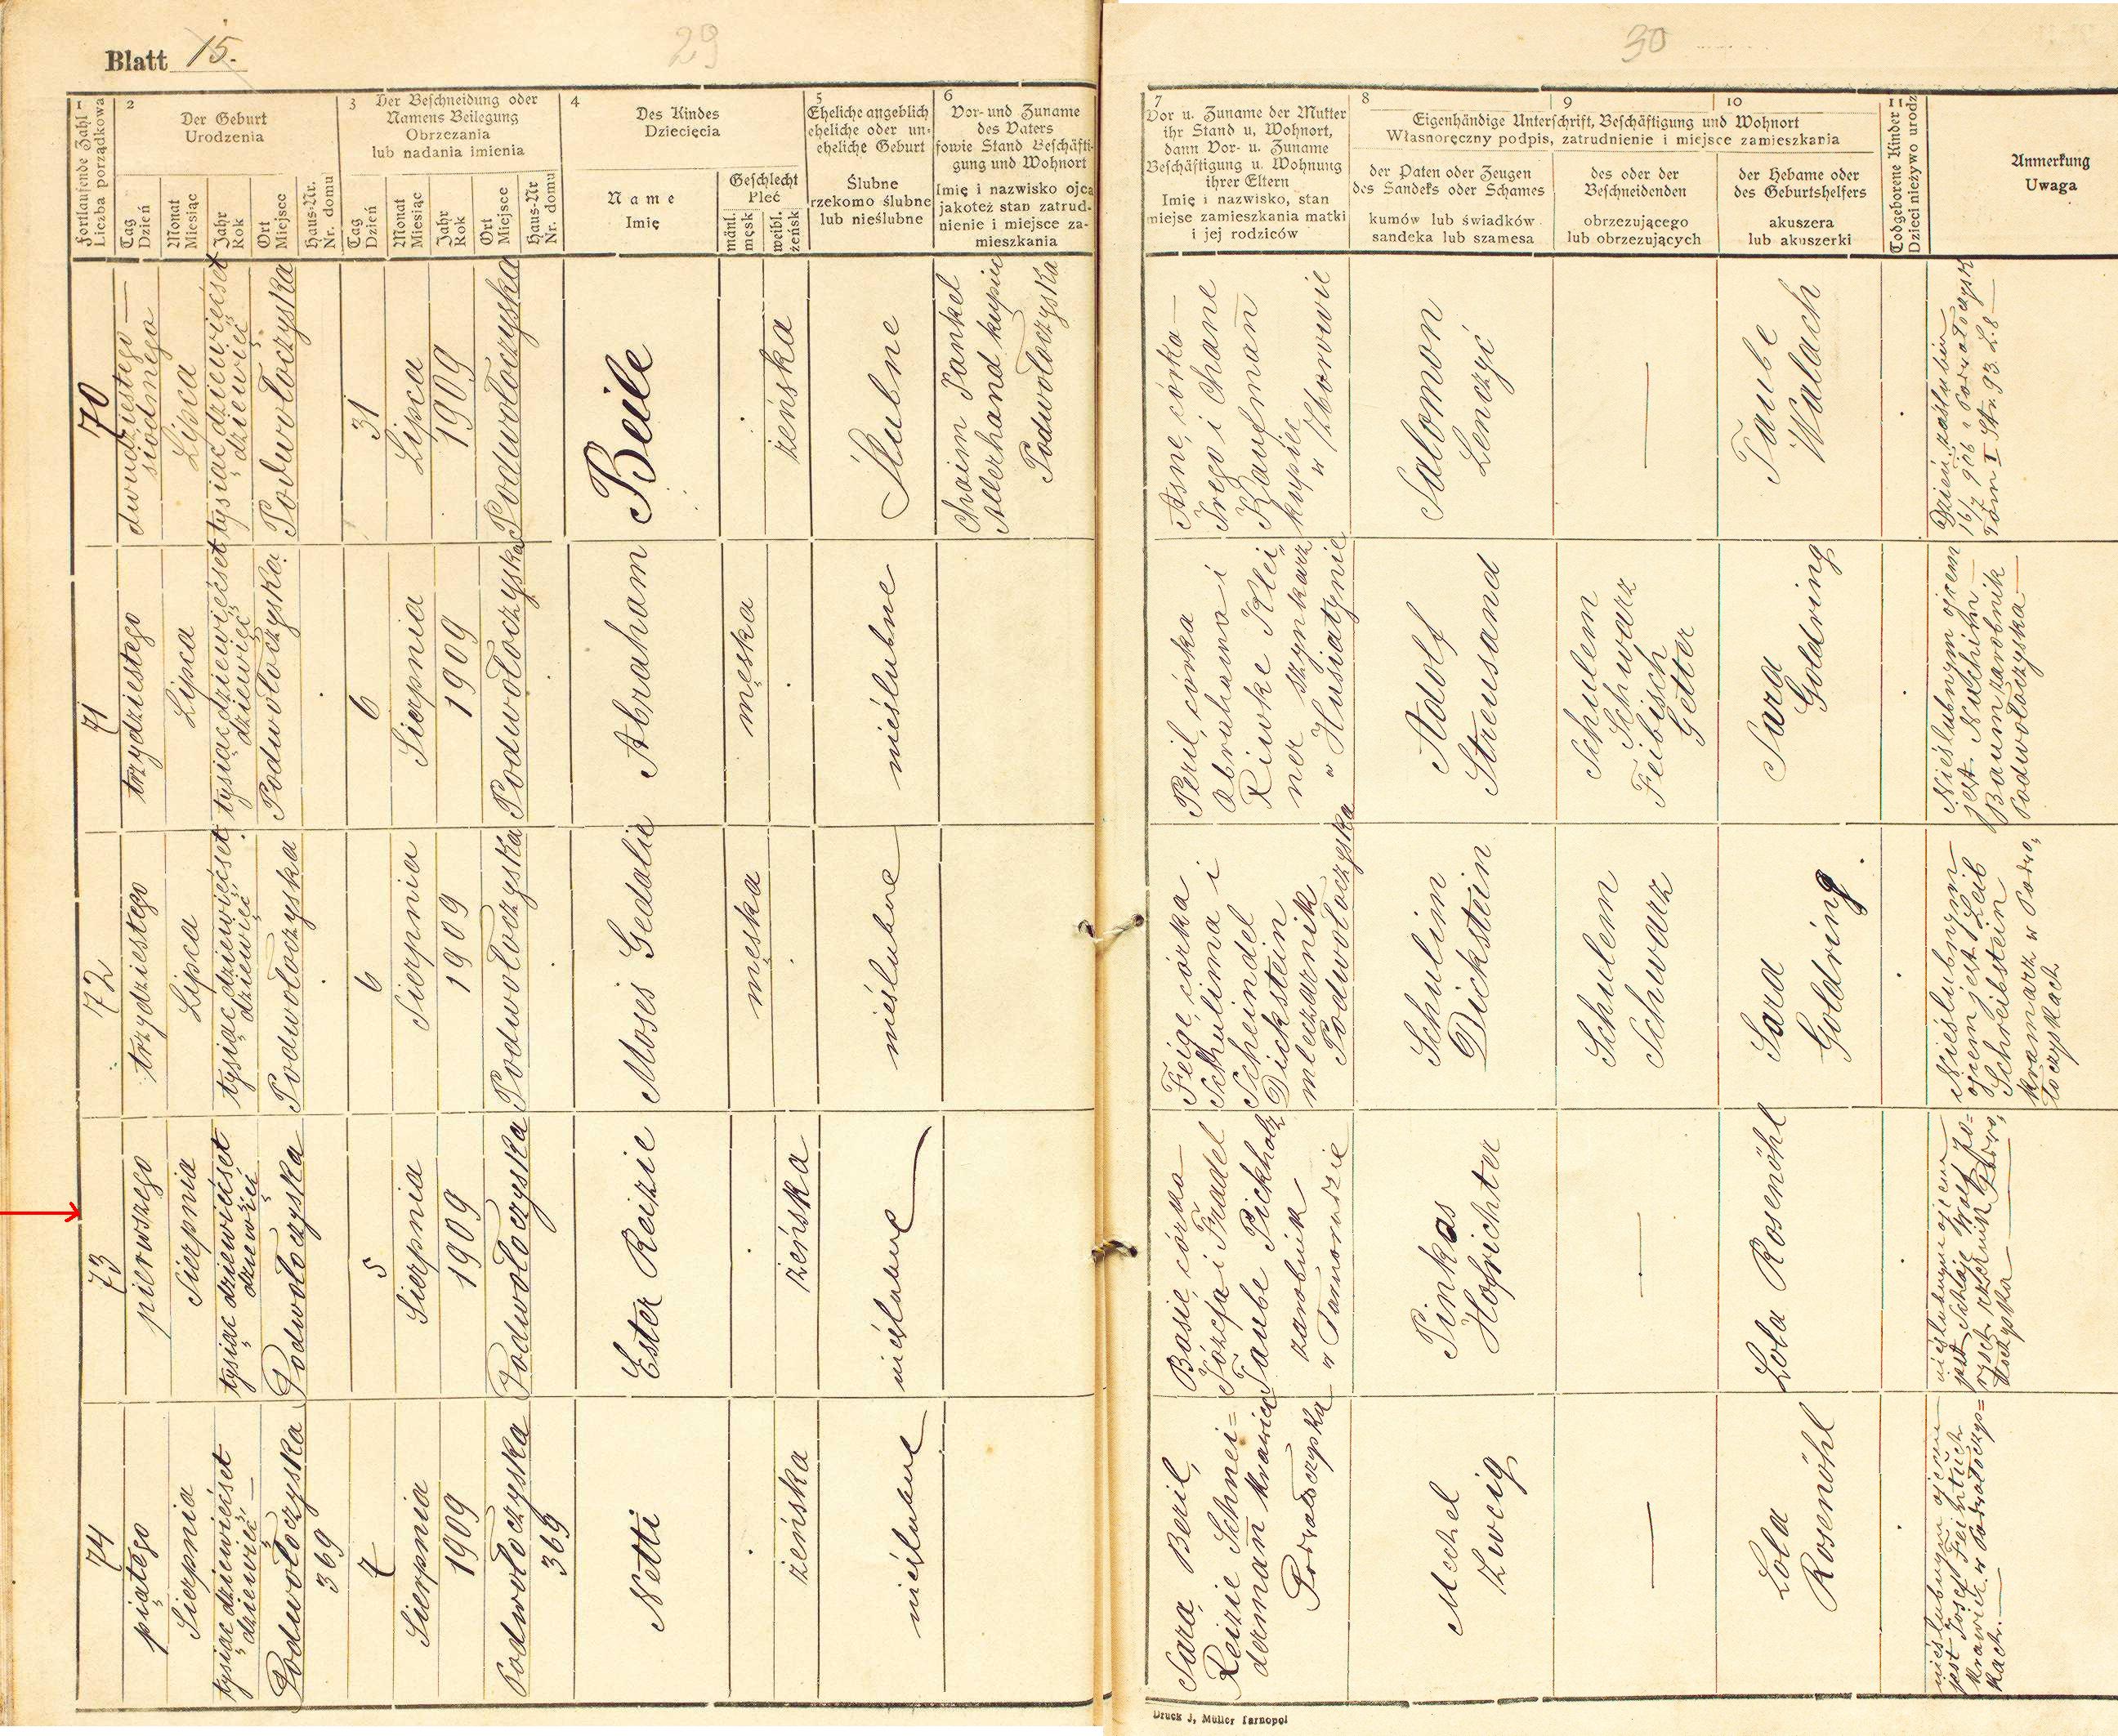 Blatt 15.
29
30
1
Fortlaufende Zahl
Liczba porządkowa
2
Der Geburt
Urodzenia
Tag
Dzień
Monat
Miesiąc
Jahr
Rok
Ort
Miejsce
Haus-Nr.
Nr. domu
3
Der Beschneidung oder
Namens Beilegung
Obrzezania
lub nadania imienia
Tag
Dzień
Monat
Miesiąc
Jahr
Rok
Ort
Miejsce
Haus-Nr
Nr. domu
4
Des Kindes
Dziecięcia
Name
Imię
Geschlecht
Płeć
männl.
męsk
weibl.
żeńsk
5
Eheliche angeblich
eheliche oder un-
eheliche Geburt
Ślubne
rzekomo ślubne
lub nieślubne
6
Vor- und Zuname
des Vaters
sowie Stand Beschäfti-
gung und Wohnort
Imię i nazwisko ojca
jakoteż stan zatrud-
nienie i miejsce za-
mieszkania
7
Vor u. Zuname der Mutter
ihr Stand u, Wohnort,
dann Vor- u. Zuname
Beschäftigung u. Wohnung
ihrer Eltern
Imię i nazwisko, stan
miejse zamieszkania matki
i jej rodziców
8
9
10
Eigenhändige Unterschrift, Beschäftigung und Wohnort
Własnoręczny podpis, zatrudnienie i miejsce zamieszkania
der Paten oder Zeugen
des Sandeks oder Schames
kumów lub świadków
sandeka lub szamesa
des oder der
Beschneidenden
obrzezującego
lub obrzezujących
der Hebame oder
des Geburtshelfers
akuszera
lub akuszerki
11
Todgeborene Kinder
Dzieci nieżywo urodz
Anmerkung
Uwaga
70
dwudziestego —
siódmego
Lipca
tysiąc dziewięćset
dziewięć
Podwołoczyska
31
Lipca
1909
Podwołoczyska
Beile
żeńska
Ślubne
Chaim Jankel
Allerhand kupiec
Podwołoczyska
Asne, córka —
i Chane
Kaufman
kupiec
w Zborowie
Salomon
Lenczyć
—
Taube
Walach
Dzień zaślubin
16/7 906 w Podwołoczysk
Tom I Str. 93 L. 8 —
71
trzydziestego
Lipca
tysiąc dziewięćset
dziewięć
Podwołoczyska
6
Sierpnia
1909
Podwołoczyska
Abraham
męska
nieślubne
Peril, córka
Abrahama i
Riwke Klei
ner szynkarz
w Husiatynie
Adolf
Streusand
Schulem
Schwarz
Feibisch
Getter
Sara
Goldring
Nieślubnym ojcem
jest Nuchim —
Baum zarobnik
Podwołoczyska —
72
trzydziestego
Lipca
tysiąc dziewięćset
dziewięć
Podwołoczyska
6
Sierpnia
1909
Podwołoczyska
Moses Gedalie
męska
nieślubne
Feige, córka
Schulima i
Scheindel
Dickstein
mleczarnik
Podwołoczyska
Schulim
Dickstein
Schulem
Schwarz
Sara
Goldring
Nieślubnym
ojcem jest Leib
Schreibstein
kramarz w Podwo,
łoczyskach
73
pierwszego
Sierpnia
tysiąc dziewięćset
dziewięć
Podwołoczyska
5
Sierpnia
1909
Podwołoczyska
Ester Reizie
żeńska
nieślubne
Basie, córka —
Józefa i Fradel
Taube Pickholz
zarobnik
w Tarnorudzie
Pinkas
Hofrichter
—
Lola Rosenöhl
nieślubnym ojcem
74
piątego
Sierpnia
tysiąc dziewięćset
dziewięć —
Podwołoczyska
369
7
Sierpnia
1909
Podwołoczyska
369
Netti
żeńska
nieślubne
Sara, Beril,
Reizie Schnei=
derman krawiec
Podwołoczyska
Mechel
Zweig
—
Lola
Rosenöhl
nieślubnym ojcem
krawiec w Podwołoczys=
kach. —
Druck J, Müller Tarnopol